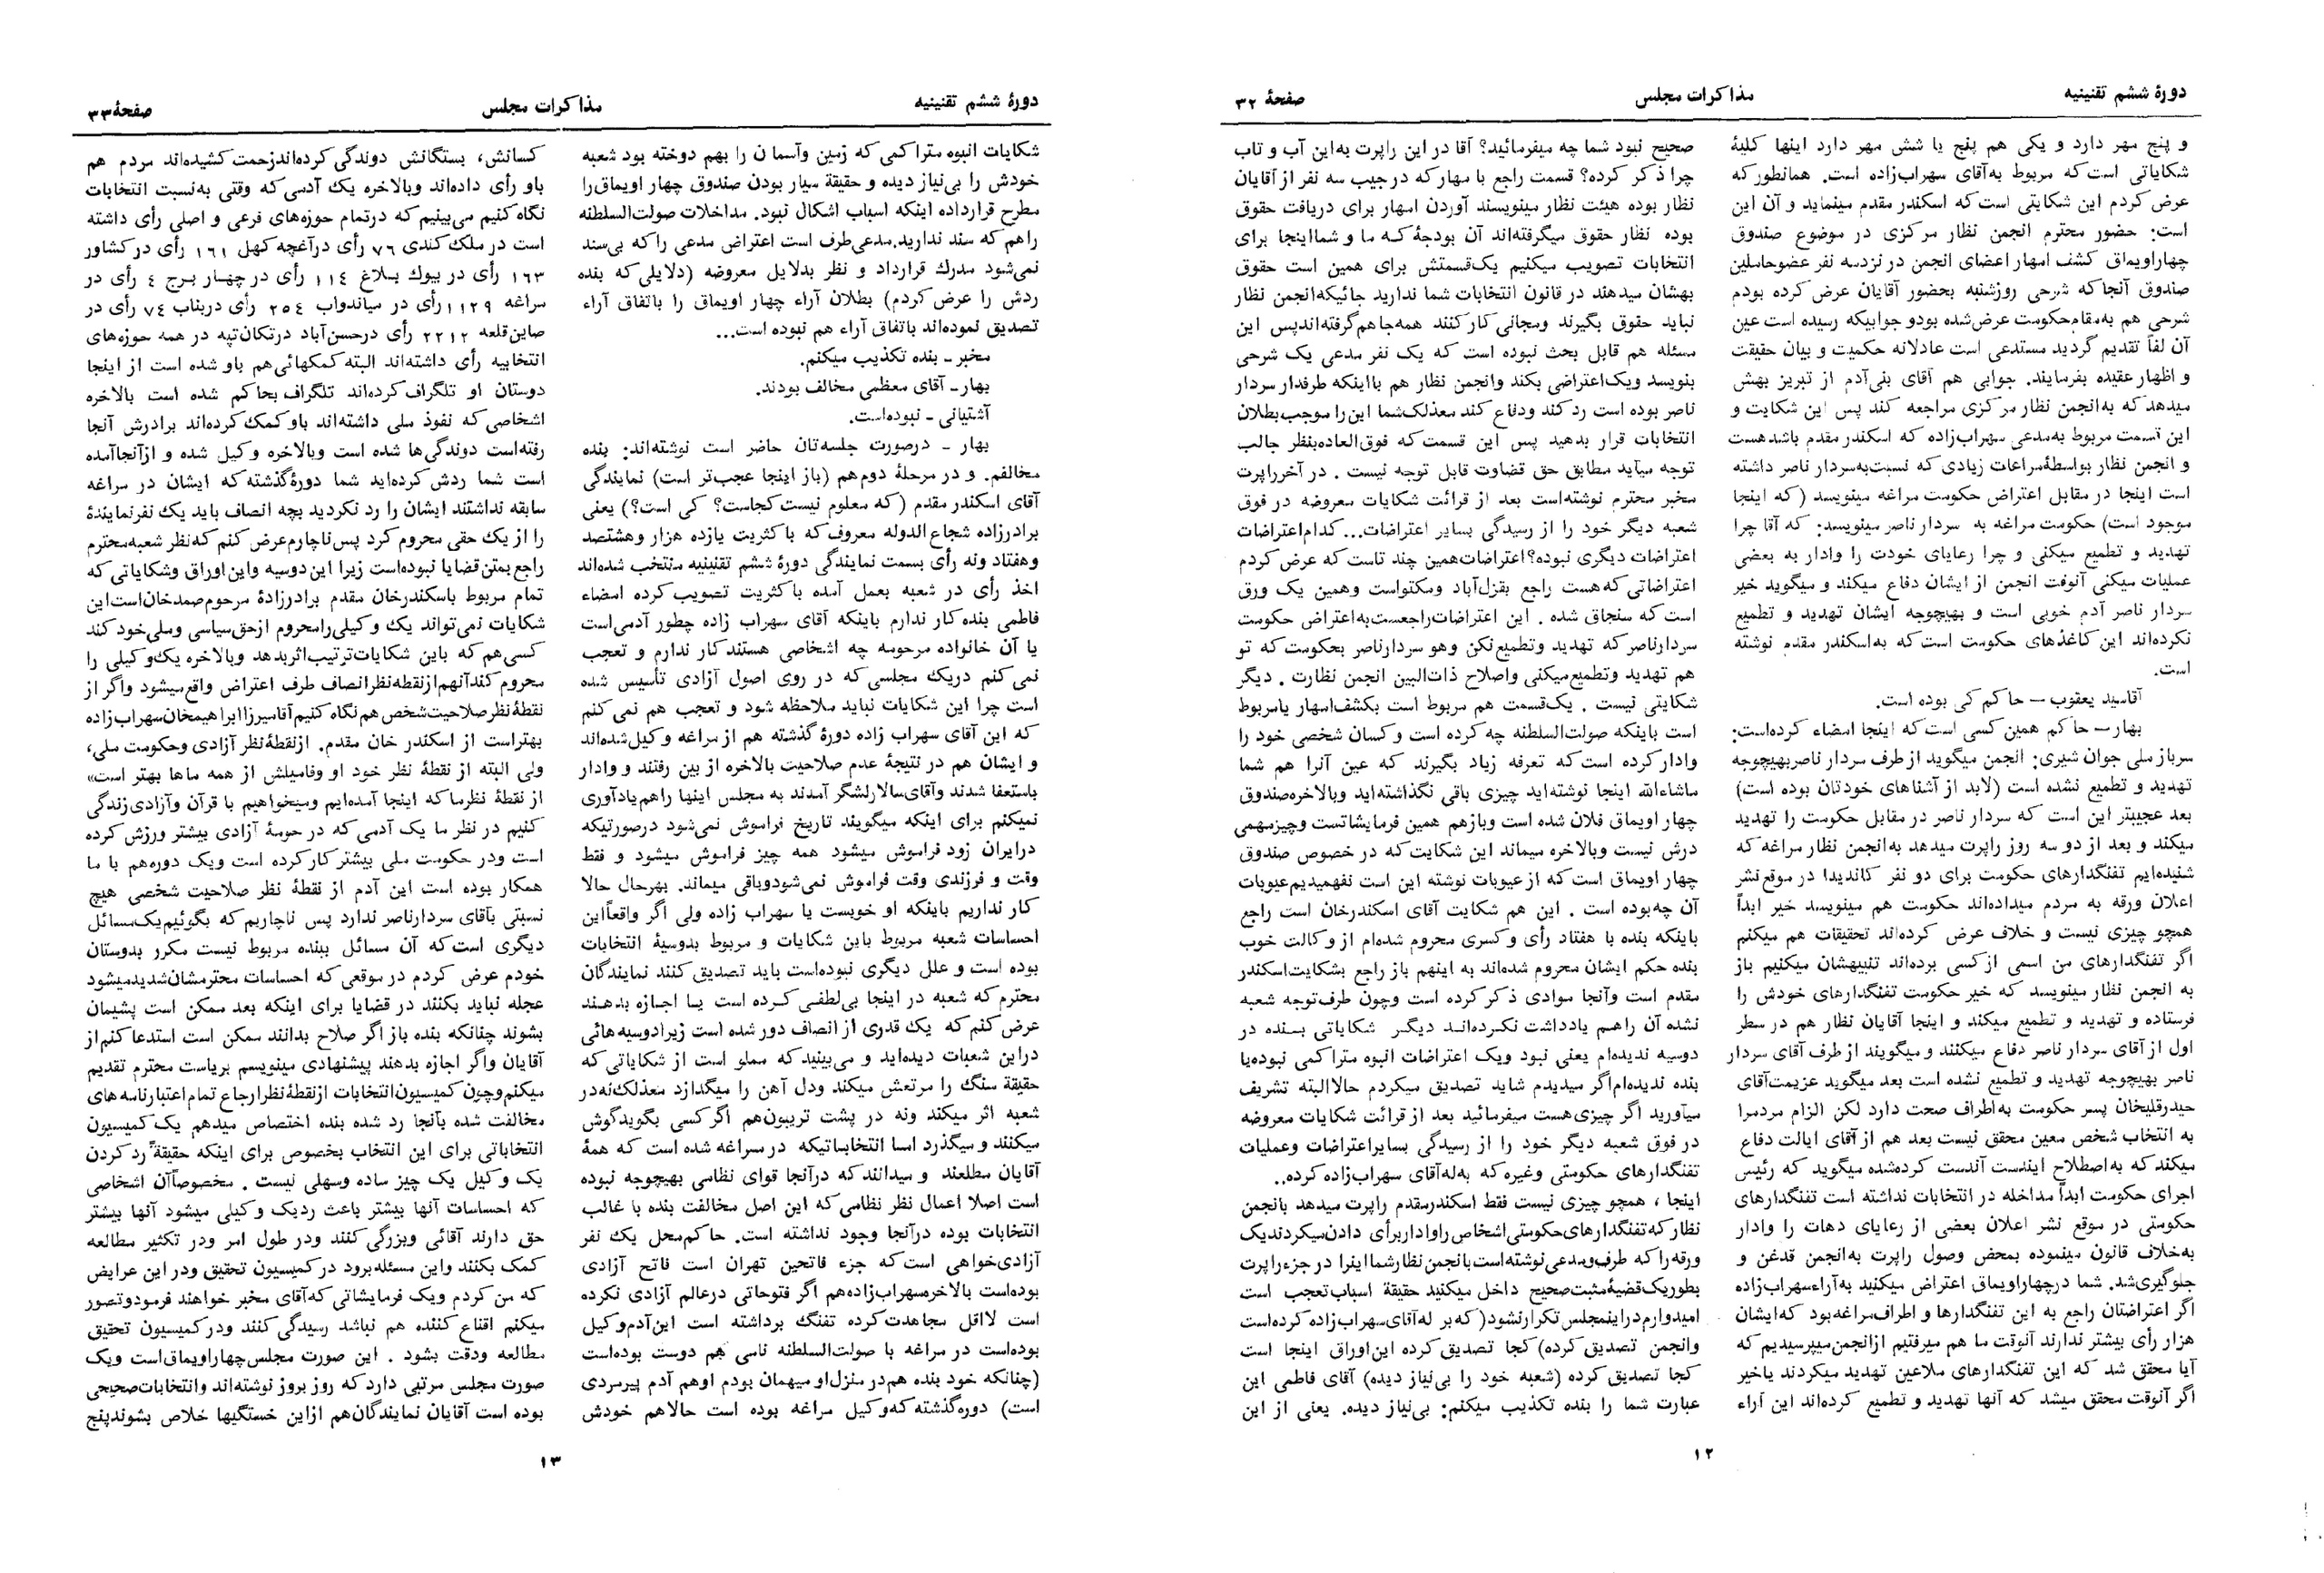 دورهٔ ششم تقنینیه
مذاکرات مجلس
صفحهٔ ۳۲
و پنج مهر دارد و یکی هم پنج یا شش مهر دارد اینها کلیهٔ
شکایاتی است که مربوط به‌آقای سهراب‌زاده است. همانطور که
عرض کردم این شکایتی است که اسکندر مقدم مینماید و آن این
است: حضور محترم انجمن نظار مرکزی در موضوع صندوق
چهاراویماق کشف امهار اعضای انجمن در نزدسه نفر عضوحاملین
صندوق آنجا که شرحی روزشنبه بحضور آقایان عرض کرده بودم
شرحی هم به‌مقام‌حکومت عرض‌شده بودو جوابیکه رسیده است عین
آن لفاً تقدیم گردید مستدعی است عادلانه حکمیت و بیان حقیقت
و اظهار عقیده بفرمایند. جوابی هم آقای بنی‌آدم از تبریز بهش
میدهد که به‌انجمن نظار مرکزی مراجعه کند پس این شکایت و
این قسمت مربوط به‌مدعی سهراب‌زاده که اسکندر مقدم باشد هست
و انجمن نظار بواسطهٔ مراعات زیادی که نسبت‌به‌سردار ناصر داشته
است اینجا در مقابل اعتراض حکومت مراغه مینویسد (که اینجا
موجود است) حکومت مراغه به سردار ناصر مینویسد: که آقا چرا
تهدید و تطمیع میکنی و چرا رعایای خودت را وادار به بعضی
عملیات میکنی آنوقت انجمن از ایشان دفاع میکند و میگوید خیر
سردار ناصر آدم خوبی است و بهیچوجه ایشان تهدید و تطمیع
نکرده‌اند این کاغذهای حکومت است که به‌اسکندر مقدم نوشته
است.
آقاسید یعقوب – حاکم کی بوده است.
بهار– حاکم همین کسی است که اینجا امضاء کرده‌است:
سرباز ملی جوان شیری: انجمن میگوید از طرف سردار ناصربهیچوجه
تهدید و تطمیع نشده است (لابد از آشناهای خودتان بوده است)
بعد عجیبتر این است که سردار ناصر در مقابل حکومت را تهدید
میکند و بعد از دو سه روز راپرت میدهد به‌انجمن نظار مراغه که
شنیده‌ایم تفنگدارهای حکومت برای دو نفر کاندیدا در موقع نشر
اعلان ورقه به مردم میداده‌اند حکومت هم مینویسد خیر ابداً
همچو چیزی نیست و خلاف عرض کرده‌اند تحقیقات هم میکنم
اگر تفنگدارهای من اسمی از کسی برده‌اند تنبیهشان میکنیم باز
به انجمن نظار مینویسد که خیر حکومت تفنگدارهای خودش را
فرستاده و تهدید و تطمیع میکند و اینجا آقایان نظار هم در سطر
اول از آقای سردار ناصر دفاع میکنند و میگویند از طرف آقای سردار
ناصر بهیچوجه تهدید و تطمیع نشده است بعد میگوید عزیمت‌آقای
حیدرقلیخان پسر حکومت به‌اطراف صحت دارد لکن الزام مردم‌را
به انتخاب شخص معین محقق نیست بعد هم از آقای ایالت دفاع
میکند که به‌اصطلاح اینست آنست کرده‌شده میگوید که رئیس
اجرای حکومت ابداً مداخله در انتخابات نداشته است تفنگدارهای
حکومتی در موقع نشر اعلان بعضی از رعایای دهات را وادار
به‌خلاف قانون مینموده بمحض وصول راپرت به‌انجمن قدغن و
جلوگیری‌شد. شما درچهاراویماق اعتراض میکنید به‌آراءسهراب‌زاده
اگر اعتراضتان راجع به این تفنگدارها و اطراف‌مراغه‌بود که‌ایشان
هزار رأی بیشتر ندارند آنوقت ما هم میرفتیم ازانجمن‌میپرسیدیم که
آیا محقق شد که این تفنگدارهای ملاعین تهدید میکردند یاخیر
اگر آنوقت محقق میشد که آنها تهدید و تطمیع کرده‌اند این آراء
صحیح نبود شما چه میفرمائید؟ آقا در این راپرت به‌این آب و تاب
چرا ذکر کرده؟ قسمت راجع با مهار که درجیب سه نفر از آقایان
نظار بوده هیئت نظار مینویسند آوردن امهار برای دریافت حقوق
بوده نظار حقوق میگرفته‌اند آن بودجهٔ که ما و شمااینجا برای
انتخابات تصویب میکنیم یک‌قسمتش برای همین است حقوق
بهشان میدهند در قانون انتخابات شما ندارید جائیکه‌انجمن نظار
نباید حقوق بگیرند ومجانی کار کنند همه‌جاهم‌گرفته‌اندپس این
مسئله هم قابل بحث نبوده است که یک نفر مدعی یک شرحی
بنویسد ویک‌اعتراضی بکند وانجمن نظار هم بااینکه طرفدار سردار
ناصر بوده است رد کند ودفاع کند معذلک‌شما این‌را موجب‌بطلان
انتخابات قرار بدهید پس این قسمت که فوق‌العاده‌بنظر جالب
توجه میآید مطابق حق قضاوت قابل توجه نیست . در آخرراپرت
مخبر محترم نوشته‌است بعد از قرائت شکایات معروضه در فوق
شعبه دیگر خود را از رسیدگی بسایر اعتراضات... کدام‌اعتراضات
اعتراضات دیگری نبوده؟اعتراضات‌همین چند تاست که عرض کردم
اعتراضاتی که‌هست راجع بقزل‌آباد ومکتواست وهمین یک ورق
است که سنجاق شده . این اعتراضات‌راجعست‌به‌اعتراض حکومت
سردارناصر که تهدید وتطمیع‌نکن وهو سردارناصر بحکومت که تو
هم تهدید وتطمیع‌میکنی واصلاح ذات‌البین انجمن نظارت . دیگر
شکایتی نیست . یک‌قسمت هم مربوط است بکشف‌امهار یامربوط
است باینکه صولت‌السلطنه چه کرده است وکسان شخصی خود را
وادار کرده است که تعرفه زیاد بگیرند که عین آنرا هم شما
ماشاءالله اینجا نوشته‌اید چیزی باقی نگذاشته‌اید وبالاخره‌صندوق
چهار اویماق فلان شده است وبازهم همین فرمایشاتست وچیزمهمی
درش نیست وبالاخره میماند این شکایت که در خصوص صندوق
چهار اویماق است که از عیوبات نوشته این است نفهمیدیم‌عیوبات
آن چه‌بوده است . این هم شکایت آقای اسکندرخان است راجع
باینکه بنده با هفتاد رأی وکسری محروم شده‌ام از وکالت خوب
بنده حکم ایشان محروم شده‌اند به اینهم باز راجع بشکایت‌اسکندر
مقدم است وآنجا موادی ذکر کرده است وچون طرف‌توجه شعبه
نشده آن راهم یادداشت نکرده‌اند دیگر شکایاتی بنده در
دوسیه ندیده‌ام یعنی نبود ویک اعتراضات انبوه متراکمی نبوده‌یا
بنده ندیده‌ام‌اگر میدیدم شاید تصدیق میکردم حالاالبته تشریف
میآورید اگر چیزی‌هست میفرمائید بعد از قرائت شکایات معروضه
در فوق شعبه دیگر خود را از رسیدگی بسایراعتراضات وعملیات
تفنگدارهای حکومتی وغیره که به‌له‌آقای سهراب‌زاده کرده..
اینجا ، همچو چیزی نیست فقط اسکندرمقدم راپرت میدهد بانجمن
نظار که‌تفنگدارهای‌حکومتی‌اشخاص راواداربرأی دادن‌میکردند‌یک
ورقه‌را که طرف‌ومدعی‌نوشته‌است‌بانجمن‌نظارشمااینرا در جزءراپرت
بطوریک‌قضیهٔ‌مثبت‌صحیح داخل میکنید حقیقة اسباب‌تعجب است
امیدوارم‌دراینمجلس‌تکرارنشود( که‌بر له‌آقای‌سهراب‌زاده کرده‌است
وانجمن تصدیق کرده) کجا تصدیق کرده این‌اوراق اینجا است
کجا تصدیق کرده (شعبه خود را بی‌نیاز دیده) آقای فاطمی این
عبارت شما را بنده تکذیب میکنم: بی‌نیاز دیده. یعنی از این
۱۲
دورهٔ ششم تقنینیه
مذاکرات مجلس
صفحهٔ ۳۳
شکایات انبوه متراکمی که زمین وآسمان را بهم دوخته بود شعبه
خودش را بی‌نیاز دیده و حقیقة سیار بودن صندوق چهار اویماق‌را
مطرح قرارداده اینکه اسباب اشکال نبود. مداخلات صولت‌السلطنه
راهم که سند ندارید.مدعی‌طرف است اعتراض مدعی را که بی‌سند
نمی‌شود مدرك قرارداد و نظر بدلایل معروضه (دلایلی که بنده
ردش را عرض کردم) بطلان آراء چهار اویماق را باتفاق آراء
تصدیق نموده‌اند باتفاق آراء هم نبوده است...
مخبر- بنده تکذیب میکنم.
بهار- آقای معظمی مخالف بودند.
آشتیانی – نبوده‌است.
بهار – درصورت جلسه‌تان حاضر است نوشته‌اند: بنده
مخالفم. و در مرحلهٔ دوم هم (باز اینجا عجب‌تر است) نمایندگی
آقای اسکندر مقدم (که معلوم نیست کجاست؟ کی است؟) یعنی
برادرزاده شجاع الدوله معروف که باکثریت یازده هزار وهشتصد
وهفتاد ونه رأی بسمت نمایندگی دورهٔ ششم تقنینیه منتخب شده‌اند
اخذ رأی در شعبه بعمل آمده باکثریت تصویب کرده امضاء
فاطمی بنده کار ندارم باینکه آقای سهراب زاده چطور آدمی‌است
یا آن خانواده مرحومه چه اشخاصی هستند کار ندارم و تعجب
نمی‌کنم دریک مجلسی که در روی اصول آزادی تأسیس شده
است چرا این شکایات نباید ملاحظه شود و تعجب هم نمی‌کنم
که این آقای سهراب زاده دورهٔ گذشته هم از مراغه وکیل‌شده‌اند
و ایشان هم در نتیجهٔ عدم صلاحیت بالاخره از بین رفتند و وادار
باستعفا شدند وآقای‌سالارلشگر آمدند به مجلس اینها راهم‌یادآوری
نمیکنم برای اینکه میگویند تاریخ فراموش نمی‌شود درصورتیکه
درایران زود فراموش میشود همه چیز فراموش میشود و فقط
وقت و فرزندی وقت فراموش نمی‌شودوباقی میماند. بهرحال حالا
کار نداریم باینکه او خوبست یا سهراب زاده ولی اگر واقعاًاین
احساسات شعبه مربوط باین شکایات و مربوط بدوسیهٔ انتخابات
بوده است و علل دیگری نبوده‌است باید تصدیق کنند نمایندگان
محترم که شعبه در اینجا بی‌لطفی کرده است یا اجازه بدهند
عرض کنم که یک قدری از انصاف دور شده است زیرادوسیه‌هائی
دراین شعبات دیده‌اید و می‌بینید که مملو است از شکایاتی که
حقیقة سنگ را مرتعش میکند ودل آهن را میگدازد معذلک‌نه‌در
شعبه اثر میکند ونه در پشت تریبون‌هم اگر کسی بگوید گوش
میکنند و میگذرد اما انتخاباتیکه درمراغه شده است که همهٔ
آقایان مطلعند و میدانند که درآنجا قوای نظامی بهیچوجه نبوده
است اصلا اعمال نظر نظامی که این اصل مخالفت بنده با غالب
انتخابات بوده درآنجا وجود نداشته است. حاکم‌محل یک نفر
آزادی‌خواهی است که جزء فاتحین تهران است فاتح آزادی
بوده‌است بالاخره‌سهراب‌زاده‌هم اگر فتوحاتی درعالم آزادی نکرده
است لااقل مجاهدت کرده تفنگ برداشته است این‌آدم‌وکیل
بوده‌است در مراغه با صولت‌السلطنه نامی هم دوست بوده‌است
(چنانکه خود بنده هم‌در منزل‌او میهمان بودم اوهم آدم پیرمردی
است) دوره‌گذشته که‌وکیل مراغه بوده است حالاهم خودش
کسانش، بستگانش دوندگی کرده‌اندزحمت کشیده‌اند مردم هم
باو رأی داده‌اند وبالاخره یک آدمی که وقتی به‌نسبت انتخابات
نگاه کنیم می‌بینیم که درتمام حوزه‌های فرعی و اصلی رأی داشته
است در ملک‌کندی ۷۶ رأی درآغچه کهل ۱۶۱ رأی در کشاور
۱۶۳ رأی در بیوك بلاغ ۱۱٤ رأی در چهار برج ٤ رأی در
مراغه ۱۱۲۹ رأی در میاندواب ۲۵٤ رأی دربناب ۷٤ رأی در
صاین‌قلعه ۲۲۱۲ رأی درحسن‌آباد درتکان‌تپه در همه حوزه‌های
انتخابیه رأی داشته‌اند البته کمکهائی هم باو شده است از اینجا
دوستان او تلگراف کرده‌اند تلگراف بحاکم شده است بالاخره
اشخاصی که نفوذ ملی داشته‌اند باو کمک کرده‌اند برادرش آنجا
رفته‌است دوندگی‌ها شده است وبالاخره وکیل شده و ازآنجاآمده
است شما ردش کرده‌اید شما دورهٔ گذشته که ایشان در مراغه
سابقه نداشتند ایشان را رد نکردید بچه انصاف باید یک نفرنمایندهٔ
را از یک حقی محروم کرد پس ناچارم عرض کنم که نظر شعبه‌محترم
راجع بمتن قضایا نبوده‌است زیرا این دوسیه واین اوراق وشکایاتی که
تمام مربوط باسکندرخان مقدم برادرزادهٔ مرحوم صمدخان‌است‌این
شکایات نمی‌تواند یک وکیلی رامحروم ازحق‌سیاسی وملی‌خود کند
کسی‌هم که باین شکایات‌ترتیب‌اثربدهد وبالاخره یک‌وکیلی را
محروم کندآنهم ازنقطه‌نظرانصاف طرف اعتراض واقع‌میشود واگر از
نقطهٔ نظر صلاحیت‌شخص هم‌نگاه کنیم‌آقامیرزاابراهیم‌خان‌سهراب‌زاده
بهتراست از اسکندر خان مقدم. ازنقطهٔ نظر آزادی وحکومت ملی،
ولی البته از نقطهٔ نظر خود او وفامیلش از همه ماها بهتر است»
از نقطهٔ نظرما که اینجا آمده‌ایم ومیخواهیم با قرآن وآزادی‌زندگی
کنیم در نظر ما یک آدمی که در حومهٔ آزادی بیشتر ورزش کرده
است ودر حکومت ملی بیشتر کار کرده است ویک دوره‌هم با ما
همکار بوده است این آدم از نقطهٔ نظر صلاحیت شخصی هیچ
نسبتی بآقای سردارناصر ندارد پس ناچاریم که بگوئیم‌یک‌مسائل
دیگری است که آن مسائل ببنده مربوط نیست مکرر بدوستان
خودم عرض کردم در موقعی که احساسات محترمشان‌شدیدمیشود
عجله نباید بکنند در قضایا برای اینکه بعد ممکن است پشیمان
بشوند چنانکه بنده باز اگر صلاح بدانند ممکن است استدعا کنم‌از
آقایان واگر اجازه بدهند پیشنهادی مینویسم بریاست محترم تقدیم
میکنم‌وچون کمیسیون‌انتخابات ازنقطهٔ نظرارجاع تمام‌اعتبارنامه‌های
مخالفت شده بآنجا رد شده بنده اختصاص میدهم یک‌کمیسیون
انتخاباتی برای این انتخاب بخصوص برای اینکه حقیقةً رد کردن
یک وکیل یک چیز ساده وسهلی نیست . مخصوصاًآن اشخاصی
که احساسات آنها بیشتر باعث ردیک وکیلی میشود آنها بیشتر
حق دارند آقائی وبزرگی کنند ودر طول امر ودر تکثیر مطالعه
کمک بکنند واین مسئله‌برود در کمیسیون تحقیق ودر این عرایض
که من کردم ویک فرمایشاتی که‌آقای مخبر خواهند فرمودوتصور
میکنم اقناع کننده هم نباشد رسیدگی کنند ودر کمیسیون تحقیق
مطالعه ودقت بشود . این صورت مجلس‌چهاراویماق‌است ویک
صورت مجلس مرتبی دارد که روز بروز نوشته‌اند وانتخابات‌صحیحی
بوده است آقایان نمایندگان‌هم ازاین خستگیها خلاص بشوندپنج
۱۳